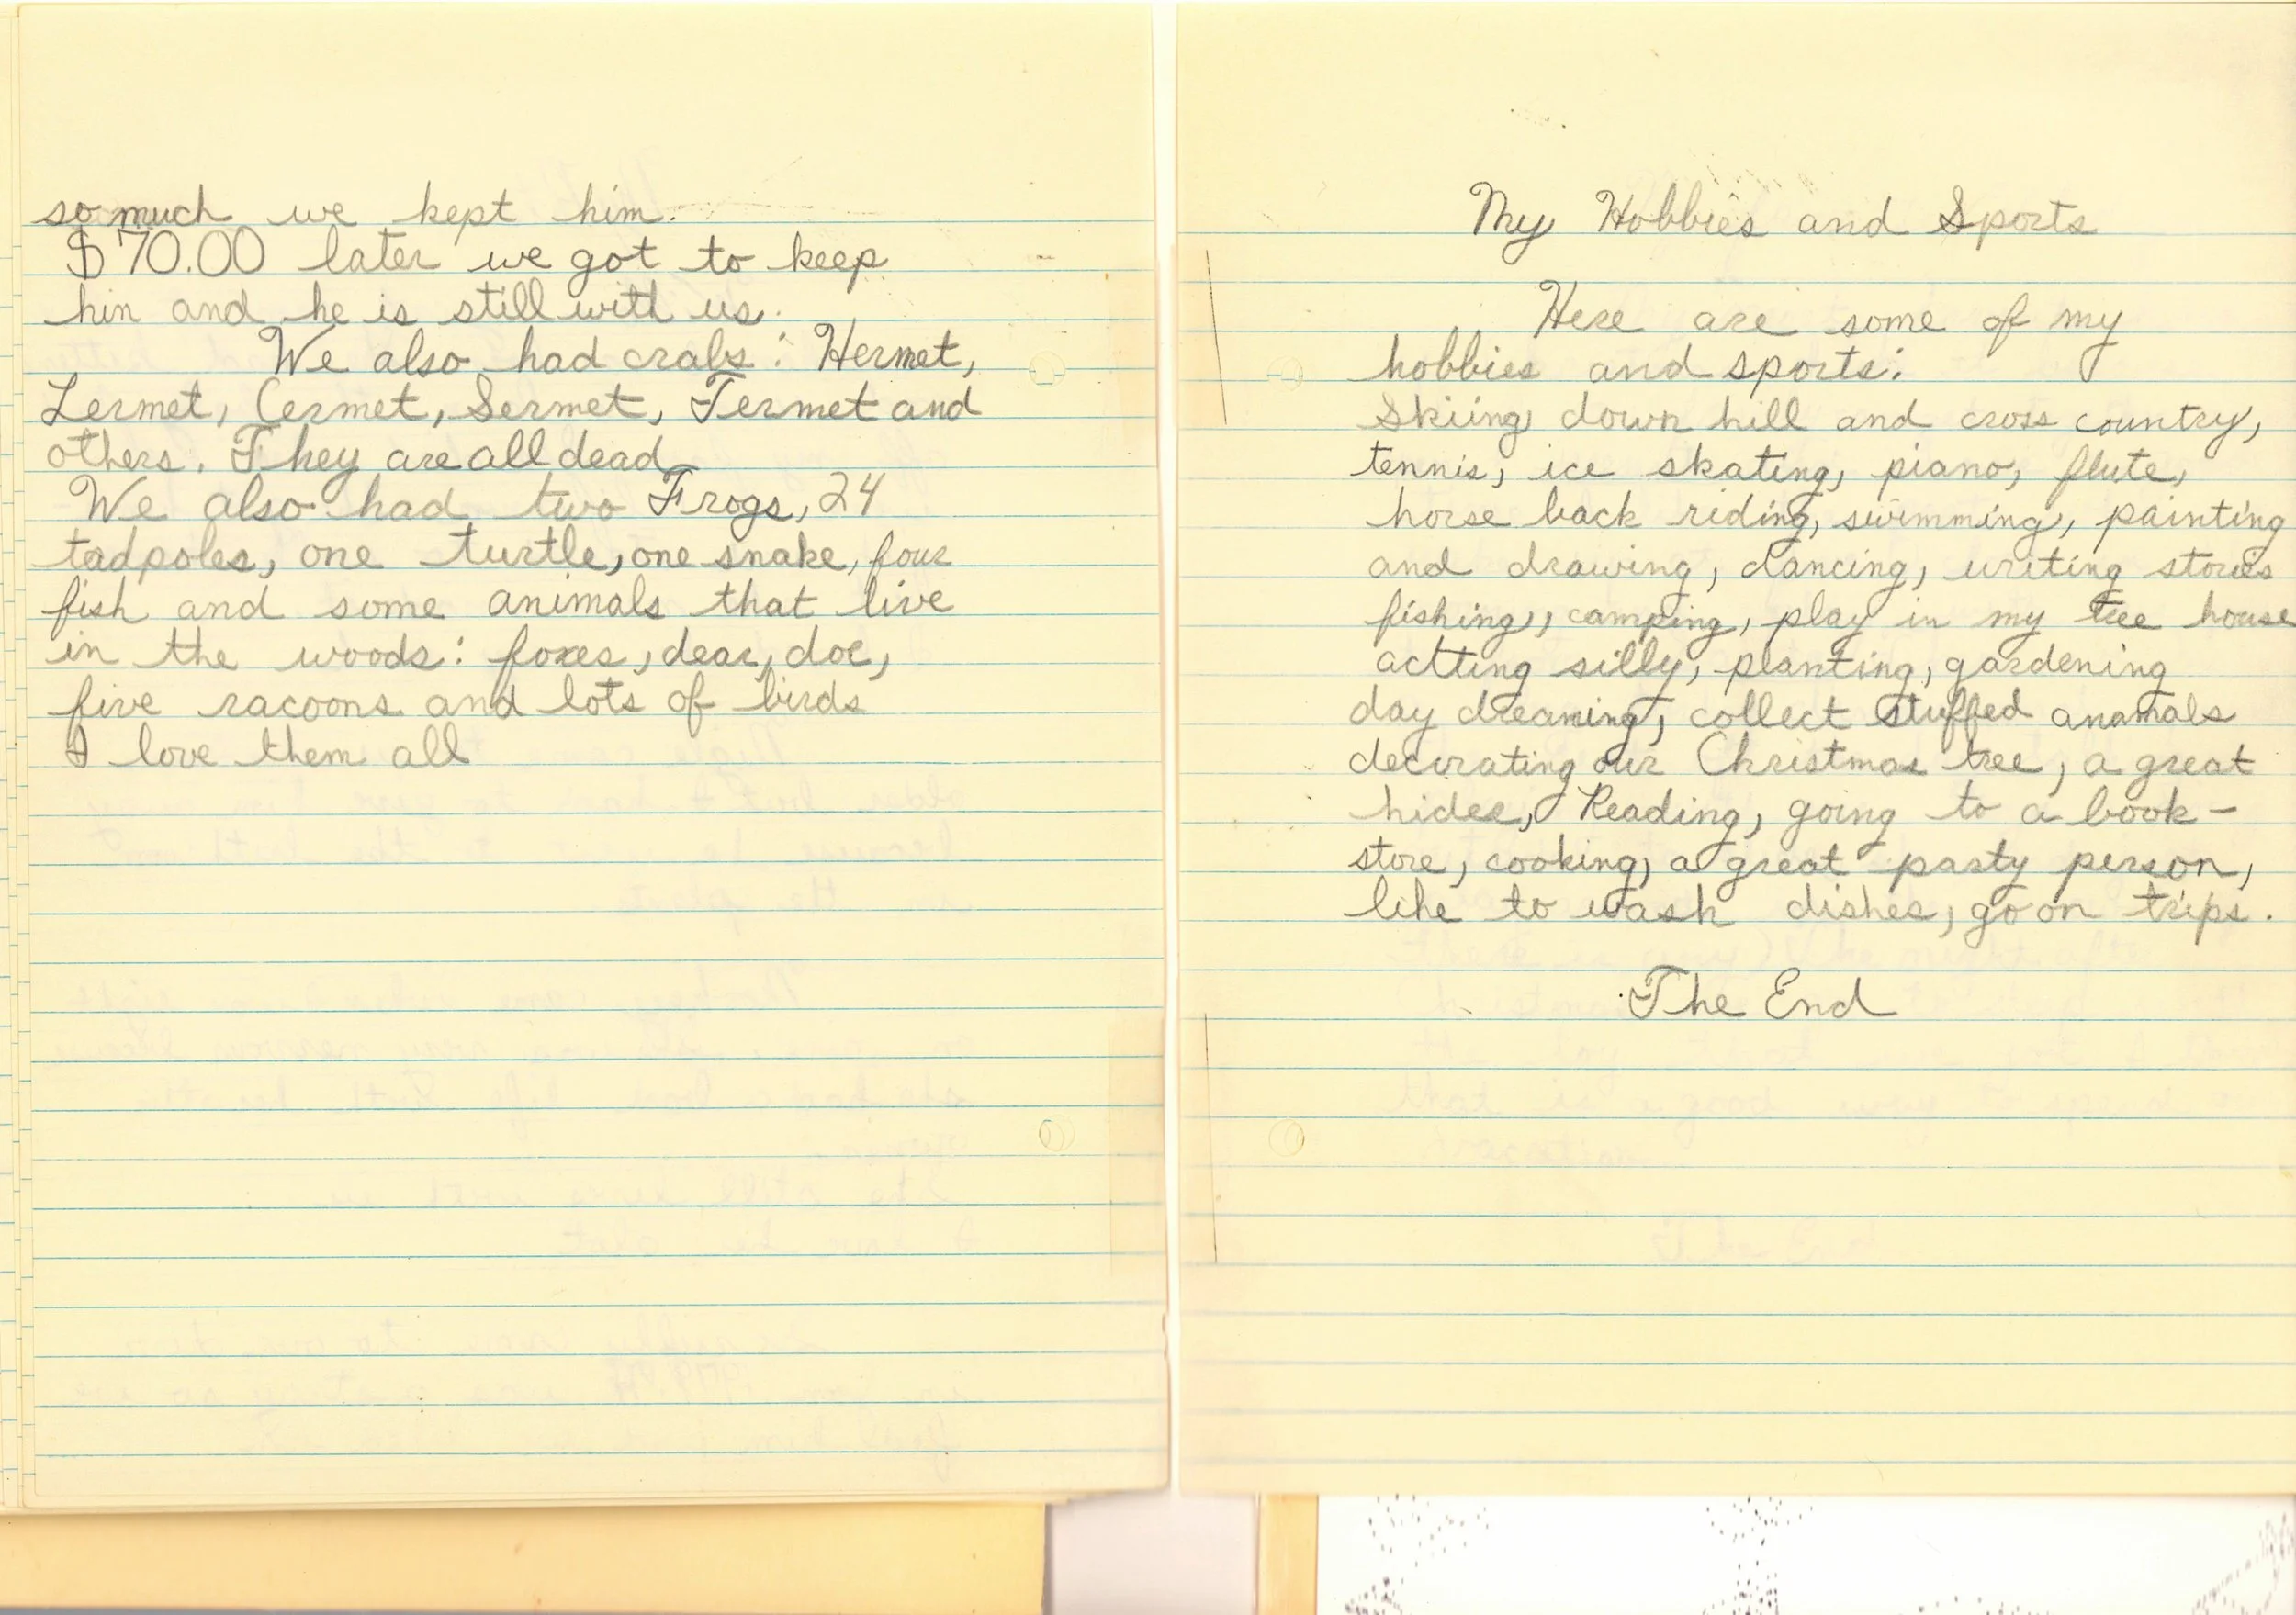 so much we kept him.
$70.00 later we got to keep
hin and he is still with us.
We also had crabs: Hermet,
Lermet, Cermet, Sermet, Termet and
others. They are all dead
We also had two Frogs, 24
tadpoles, one turtle, one snake, four
fish and some animals that live
in the woods: foxes, dear, doe,
five racoons and lots of birds
I love them all
My Hobbies and Sports
Here are some of my
hobbies and sports:
Skiing down hill and cross country,
tennis, ice skating, piano, flute,
horse back riding, swimming, painting
and drawing, dancing, writing stories
fishing, camping, play in my tree house
actting silly, planting, gardening
day dreaming, collect stuffed anamals
decorating our Christmas tree, a great
hider, Reading, going to a book-
store, cooking, a great party person,
like to wash dishes, go on trips.
The End